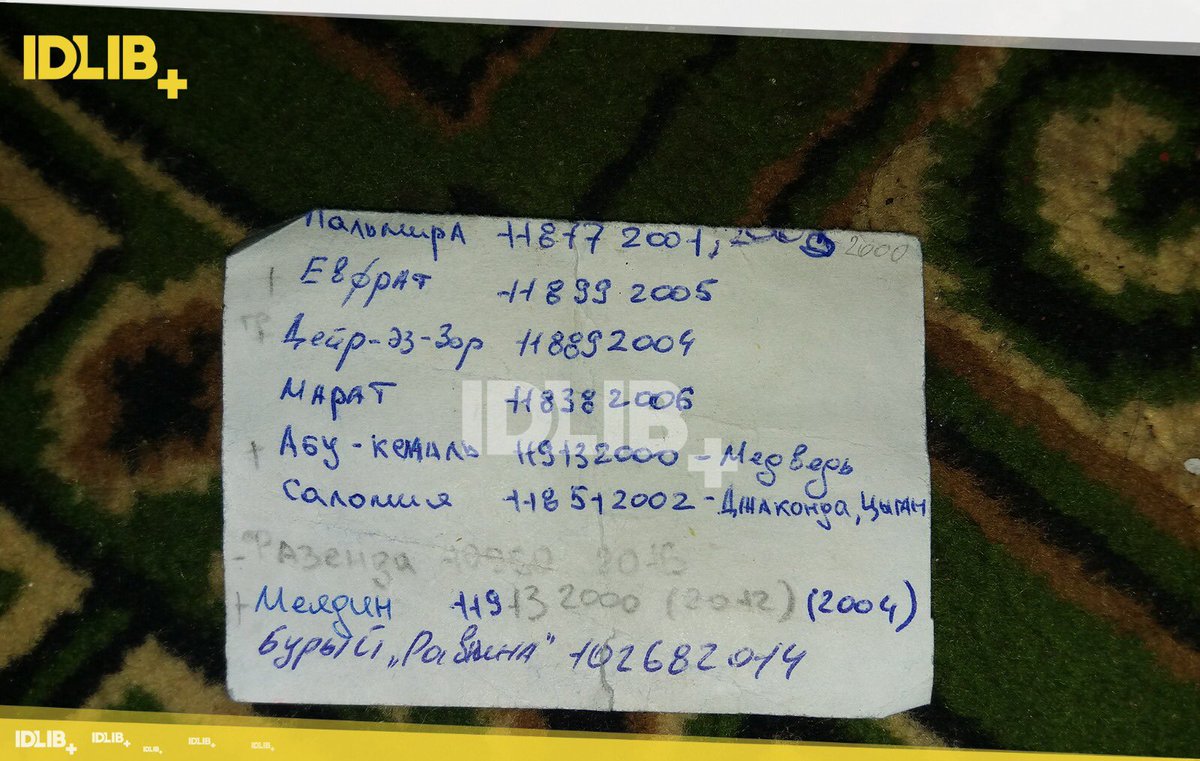 IDLIB+
Пальмира 11877 2001, 2000
Евфрат 11899 2005
тр Дейр-эз-Зор 11889 2004
Марат 11838 2006
+ Абу-кемаль 11913 2000 - Медведь
IDLIB+
Саломия 11851 2002 - Джаконда, Цыган
Фазенда 2015
+ Меядин 11913 2000 (2012) (2004)
Бурый „Равнина" 10268 2014
IDLIB+ IDLIB+ IDLIB+ IDLIB+ IDLIB+